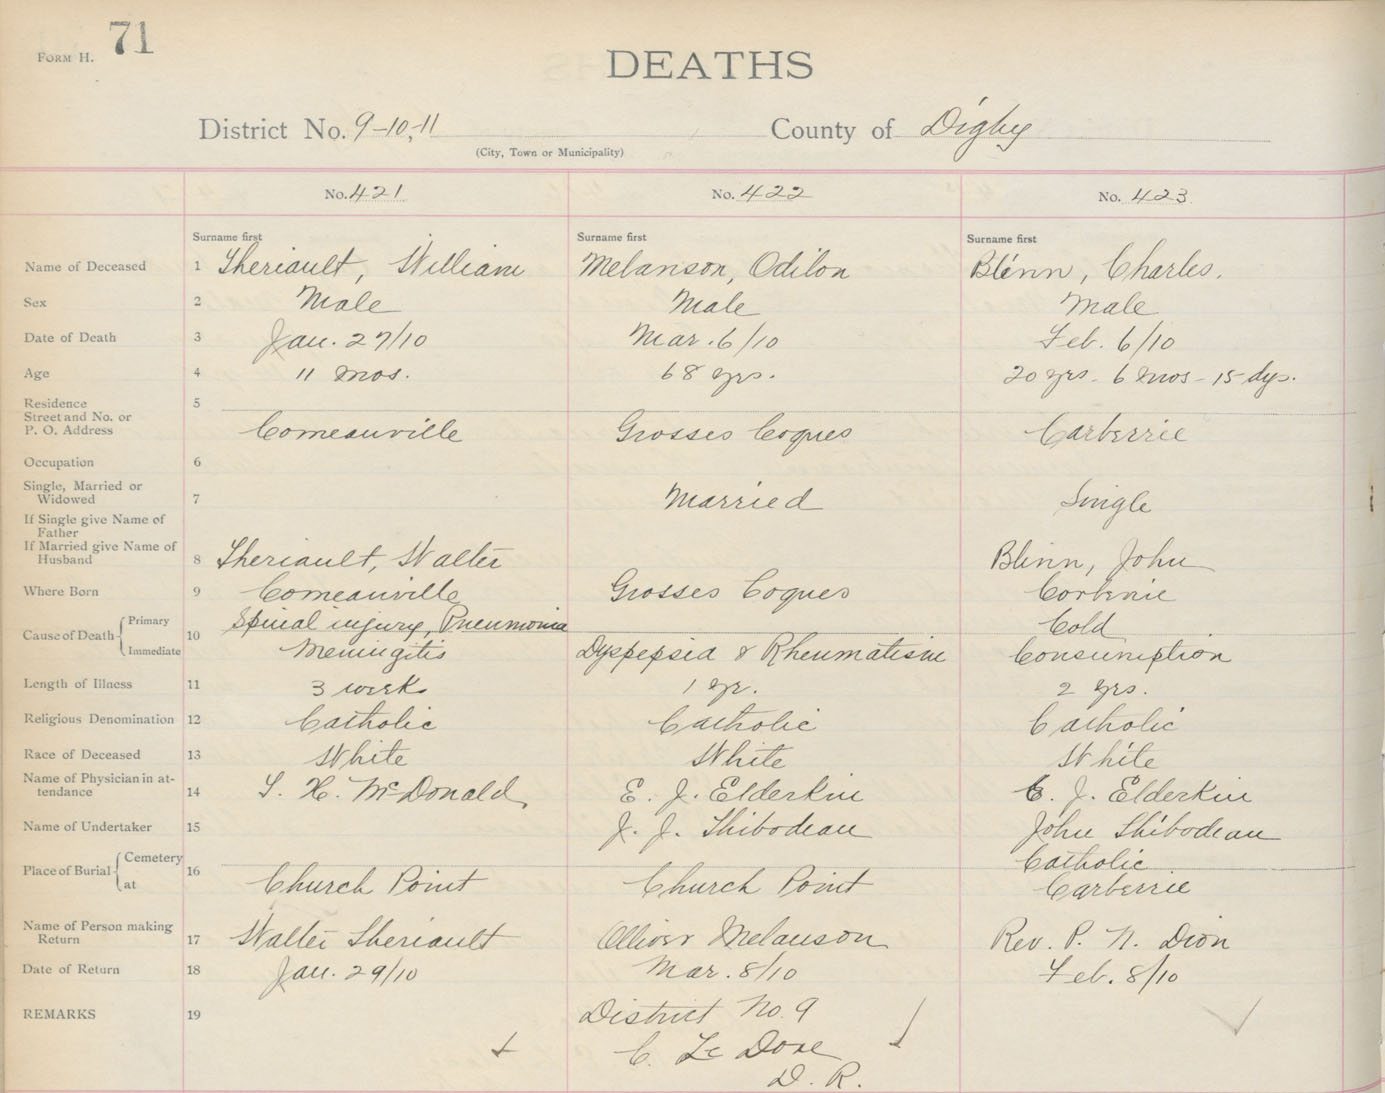 FORM H. 71
DEATHS
District No. 9-10,-11 County of Digby
(City, Town or Municipality)
No. 421 No. 422 No. 423
Surname first Surname first Surname first
Name of Deceased 1 Theriault, William Melanson, Odilon Blinn, Charles.
Sex 2 Male Male Male
Date of Death 3 Jan. 27/10 Mar. 6/10 Feb. 6/10
Age 4 11 mos. 68 yrs. 20 yrs - 6 mos - 15 dys.
Residence 5
Street and No. or
P. O. Address Comeauville Grosses Coques Carberrie
Occupation 6
Single, Married or
Widowed 7 Married Single
If Single give Name of
Father
If Married give Name of
Husband 8 Theriault, Walter Blinn, John
Where Born 9 Comeauville Grosses Coques Corberie
Cause of Death Primary 10 Spinal injury, Pneumonia Cold
Immediate Meningitis Dyspepsia & Rheumatism Consumption
Length of Illness 11 3 weeks 1 yr. 2 yrs.
Religious Denomination 12 Catholic Catholic Catholic
Race of Deceased 13 White White White
Name of Physician in at-
tendance 14 T. H. McDonald E. J. Elderkin E. J. Elderkin
Name of Undertaker 15 J. J. Thibodeau John Thibodeau
Place of Burial Cemetery 16 Catholic
at Church Point Church Point Carberrie
Name of Person making
Return 17 Walter Theriault Olliver Melanson Rev. P. N. Dion
Date of Return 18 Jan. 29/10 Mar. 8/10 Feb. 8/10
REMARKS 19 District No. 9
C. Le Dore
D. R.